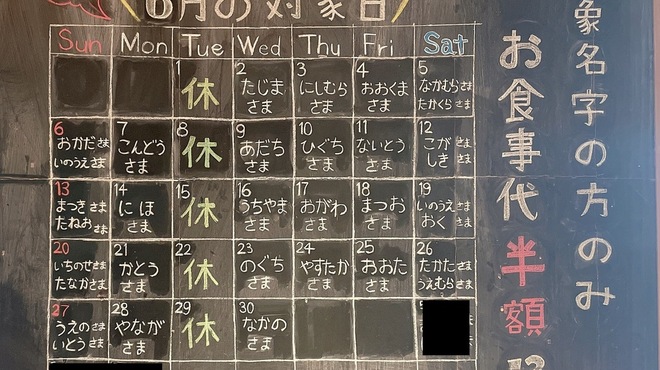 6月の対象日
Sun Mon Tue Wed Thu Fri Sat
1 2 3 4 5
休 たじまさま にしむらさま おおくまさま なかむらさま たかくらさま
6 7 8 9 10 11 12
おかださま いのうえさま こんどうさま 休 あだちさま ひぐちさま ないとうさま こがさま しきさま
13 14 15 16 17 18 19
まつきさま たねおさま にほさま 休 うちやまさま おがわさま まつおさま いのうえさま おくさま
20 21 22 23 24 25 26
いちのせさま たなかさま かとうさま 休 のぐちさま やすたかさま おおたさま たかたさま うえむらさま
27 28 29 30
うえのさま いとうさま やながさま 休 なかのさま
象名字の方のみ
お食事代半額